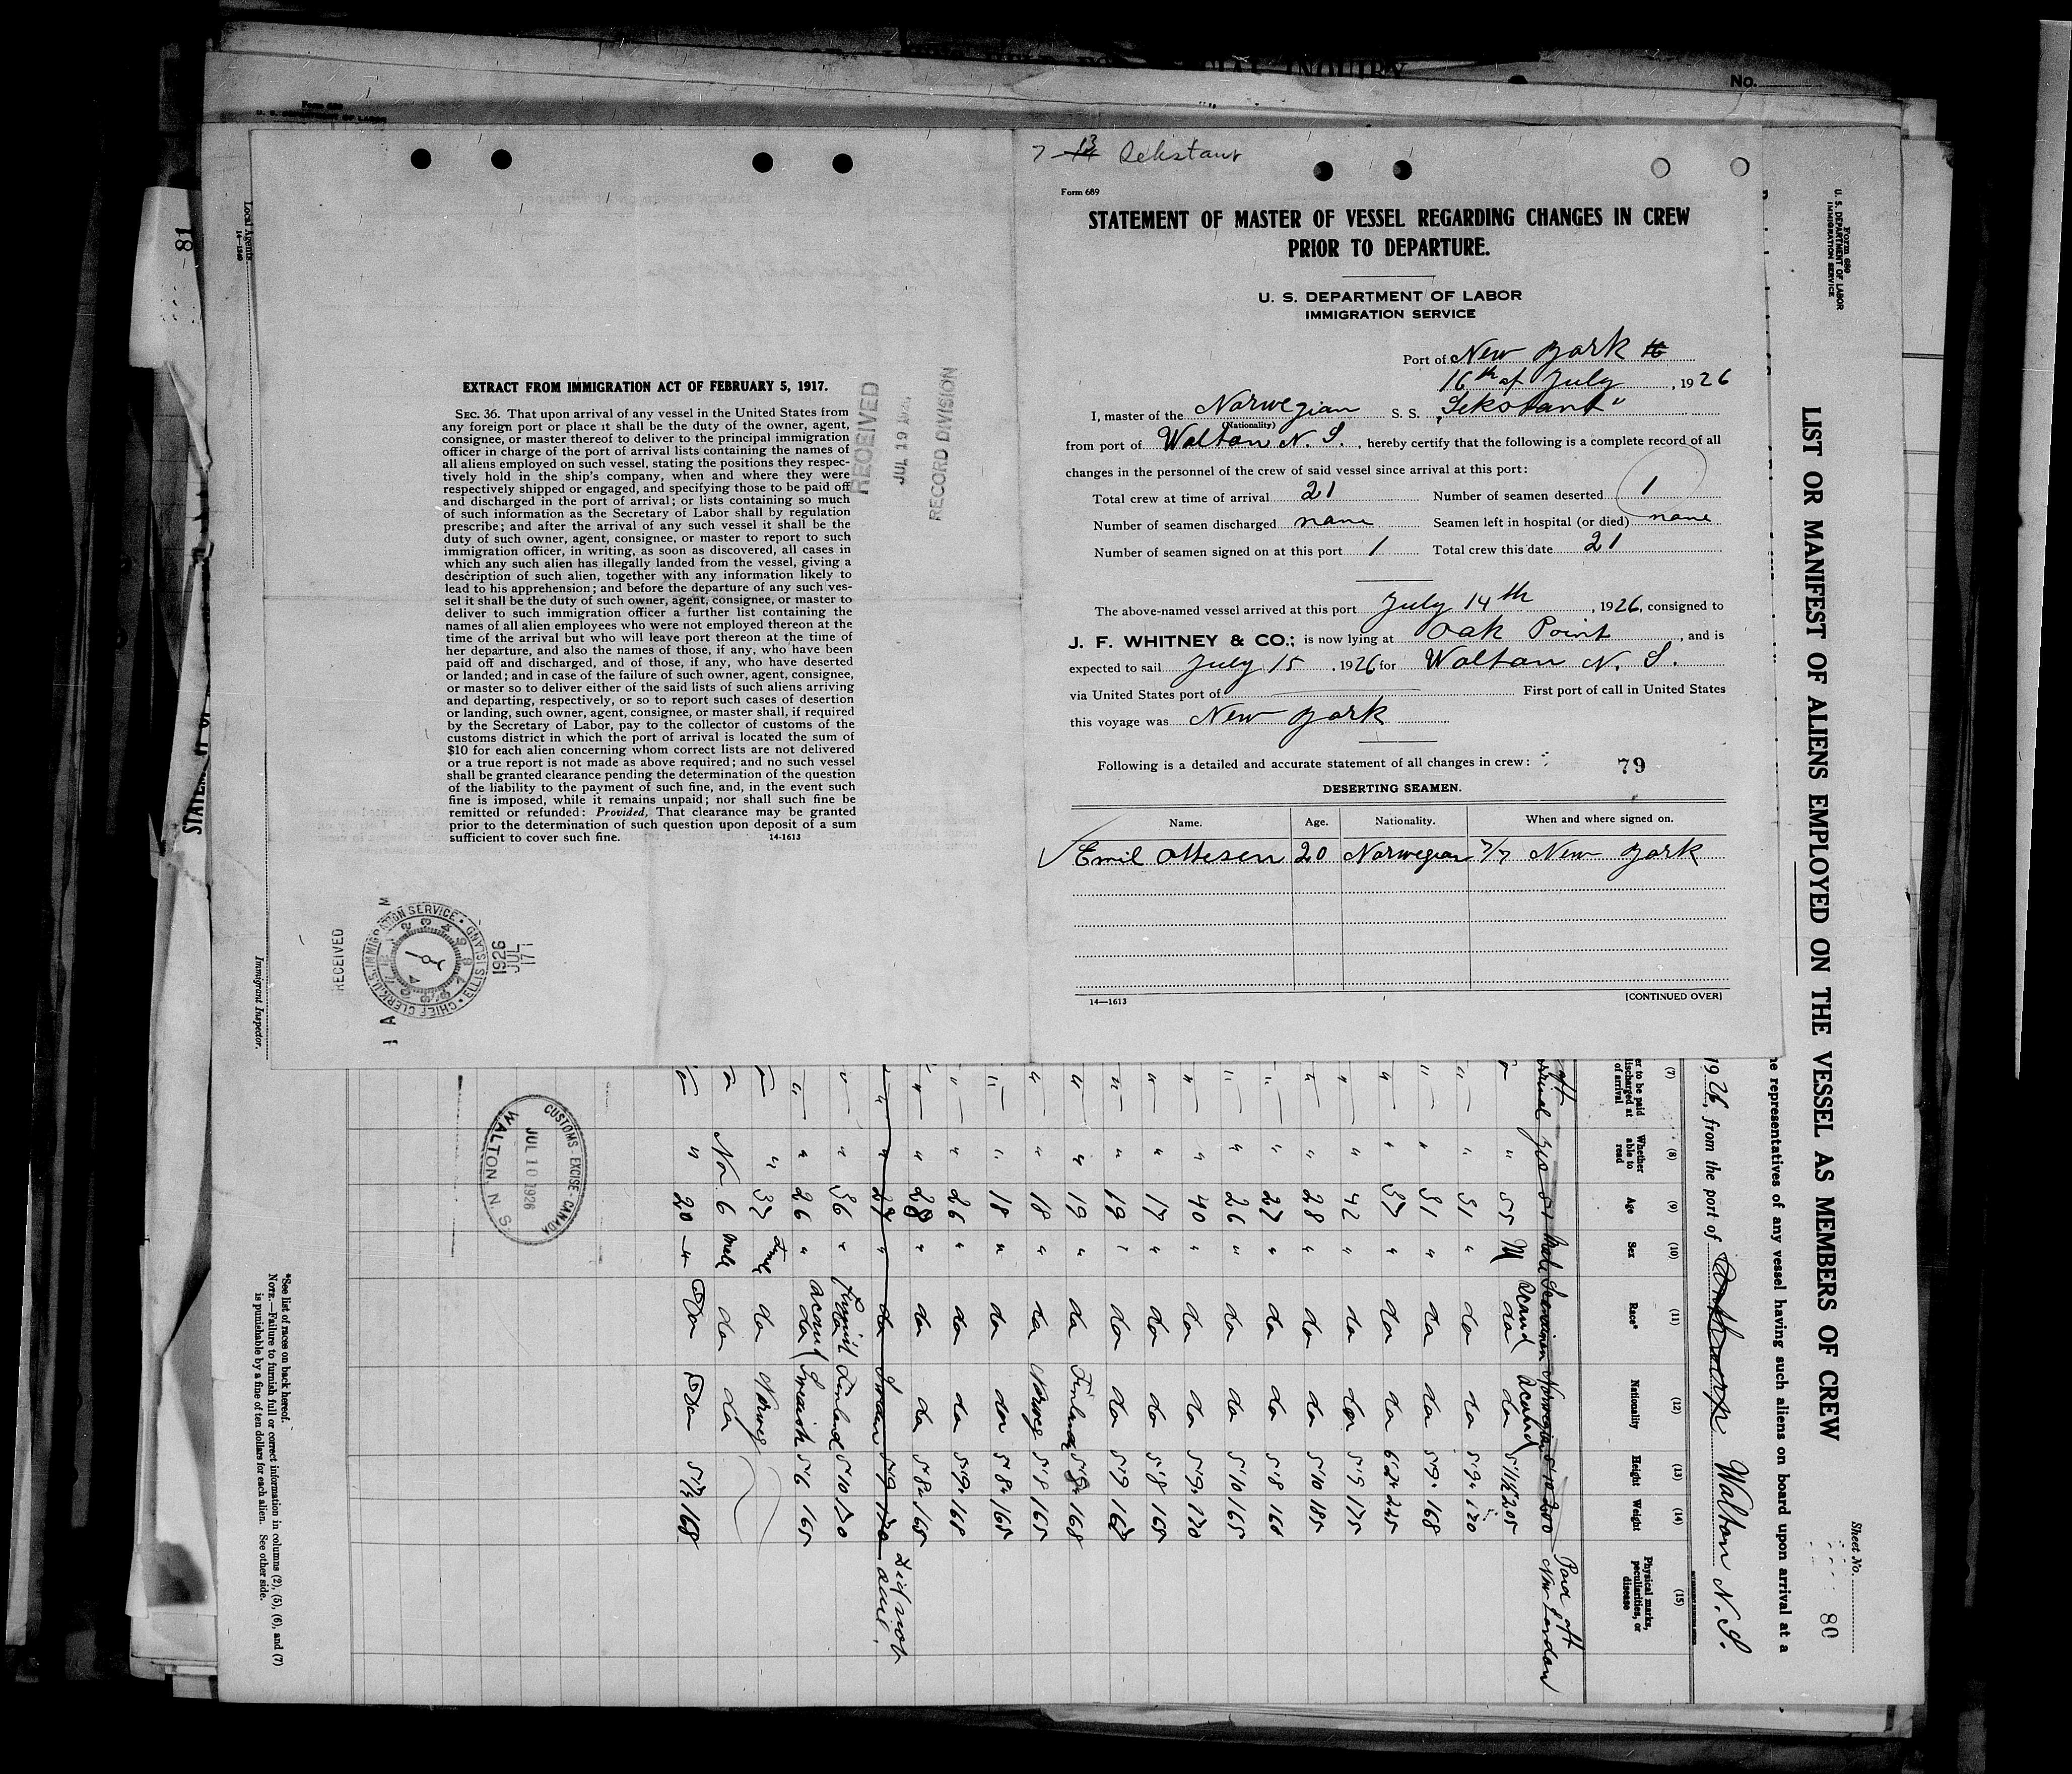 SPECIAL INQUIRY
No.
Form 689
U. S. DEPARTMENT OF LABOR
81
Local Agents
14—1240
Immigrant Inspector.
EXTRACT FROM IMMIGRATION ACT OF FEBRUARY 5, 1917.
SEC. 36. That upon arrival of any vessel in the United States from
any foreign port or place it shall be the duty of the owner, agent,
consignee, or master thereof to deliver to the principal immigration
officer in charge of the port of arrival lists containing the names of
all aliens employed on such vessel, stating the positions they respec-
tively hold in the ship's company, when and where they were
respectively shipped or engaged, and specifying those to be paid off
and discharged in the port of arrival; or lists containing so much
of such information as the Secretary of Labor shall by regulation
prescribe; and after the arrival of any such vessel it shall be the
duty of such owner, agent, consignee, or master to report to such
immigration officer, in writing, as soon as discovered, all cases in
which any such alien has illegally landed from the vessel, giving a
description of such alien, together with any information likely to
lead to his apprehension; and before the departure of any such ves-
sel it shall be the duty of such owner, agent, consignee, or master to
deliver to such immigration officer a further list containing the
names of all alien employees who were not employed thereon at the
time of the arrival but who will leave port thereon at the time of
her departure, and also the names of those, if any, who have been
paid off and discharged, and of those, if any, who have deserted
or landed; and in case of the failure of such owner, agent, consignee,
or master so to deliver either of the said lists of such aliens arriving
and departing, respectively, or so to report such cases of desertion
or landing, such owner, agent, consignee, or master shall, if required
by the Secretary of Labor, pay to the collector of customs of the
customs district in which the port of arrival is located the sum of
$10 for each alien concerning whom correct lists are not delivered
or a true report is not made as above required; and no such vessel
shall be granted clearance pending the determination of the question
of the liability to the payment of such fine, and, in the event such
fine is imposed, while it remains unpaid; nor shall such fine be
remitted or refunded: Provided, That clearance may be granted
prior to the determination of such question upon deposit of a sum
sufficient to cover such fine. 14-1613
RECEIVED
JUL 19 1926
RECORD DIVISION
RECEIVED
CHIEF CLERK U.S. IMMIGRATION SERVICE • ELLIS ISLAND •
1926
JUL
17
7 - 13 Sekstant
Form 689
STATEMENT OF MASTER OF VESSEL REGARDING CHANGES IN CREW
PRIOR TO DEPARTURE.
U. S. DEPARTMENT OF LABOR
IMMIGRATION SERVICE
Port of New York
16th of July, 1926
I, master of the Norwegian S. S. "Sekstant"
(Nationality)
from port of Walton N. S., hereby certify that the following is a complete record of all
changes in the personnel of the crew of said vessel since arrival at this port:
Total crew at time of arrival 21 Number of seamen deserted 1
Number of seamen discharged none Seamen left in hospital (or died) none
Number of seamen signed on at this port 1 Total crew this date 21
The above-named vessel arrived at this port July 14th, 1926, consigned to
J. F. WHITNEY & CO.; is now lying at Oak Point, and is
expected to sail July 15, 1926 for Walton N. S.
via United States port of First port of call in United States
this voyage was New York
Following is a detailed and accurate statement of all changes in crew:
79
DESERTING SEAMEN.
Name. Age. Nationality. When and where signed on.
Emil Ottesen 20 Norwegian 7/7 New York
14—1613
[CONTINUED OVER]
Form 689
U. S. DEPARTMENT OF LABOR
IMMIGRATION SERVICE
Sheet No.
80
LIST OR MANIFEST OF ALIENS EMPLOYED ON THE VESSEL AS MEMBERS OF CREW
he representatives of any vessel having such aliens on board upon arrival at a
1926, from the port of Antwerp Walton N. S.
(7) (8) (9) (10) (11) (12) (13) (14) (15)
er to be paid
discharged at
of arrival
Whether
able to
read
Age
Sex
Race*
Nationality
Height
Weight
Physical marks,
peculiarities, or
disease
yes 51 Male Scandinav Norwegian 5 10 200 Paid off
New London
55 M Scand do 5 11½ 205
51 do do 5 9 170
51 do do 5 9 168
37 do do 6 2 245
42 do do 5 9 175
28 do do 5 10 185
27 do do 5 8 160
26 do do 5 10 165
40 do do 5 9 170
17 do do 5 8 165
19 do do 5 9
19 do Finland 168
18 do Norweg 5 8 165
18 do do 5 8 165
26 do do 5 9 168
28 do do 5 8 165
27 do 5 9 170 Did not
sail.
36 Finland 5 10 170
26 Scand Swedish 5 6 165
37 Female do Norweg
No 6 Male do do
20 Do Do 5 7½ 168
CUSTOMS - EXCISE - CANADA
JUL 10 1926
WALTON, N. S.
*See list of races on back hereof.
NOTE.—Failure to furnish full or correct information in columns (2), (5), (6), and (7)
is punishable by a fine of ten dollars for each alien. See other side.